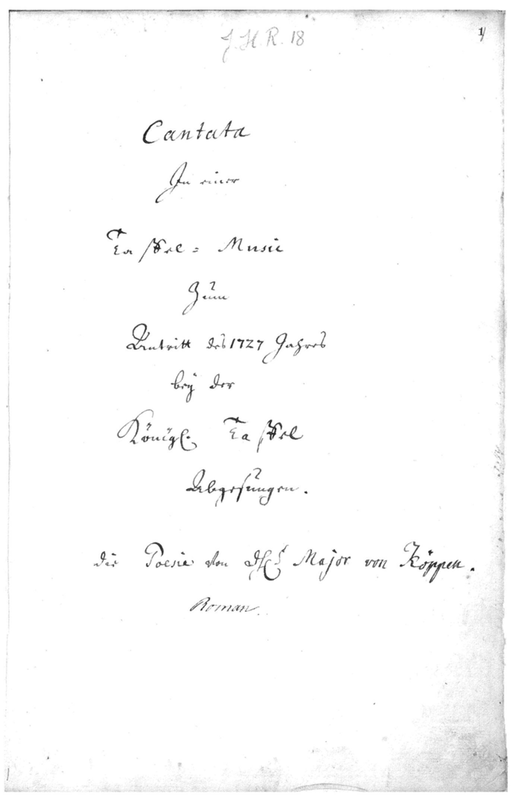 J H R. 18
1
Cantata
In einer
Taffel = Music
Zum
Antritt des 1727 Jahres
bey der
Königl. Taffel
Abgesungen.
die Poesie von Major von Köppen.
Roman.